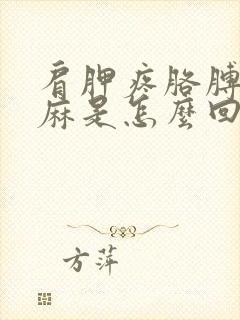 肩胛疼胳膊
麻是怎麼回
方萍